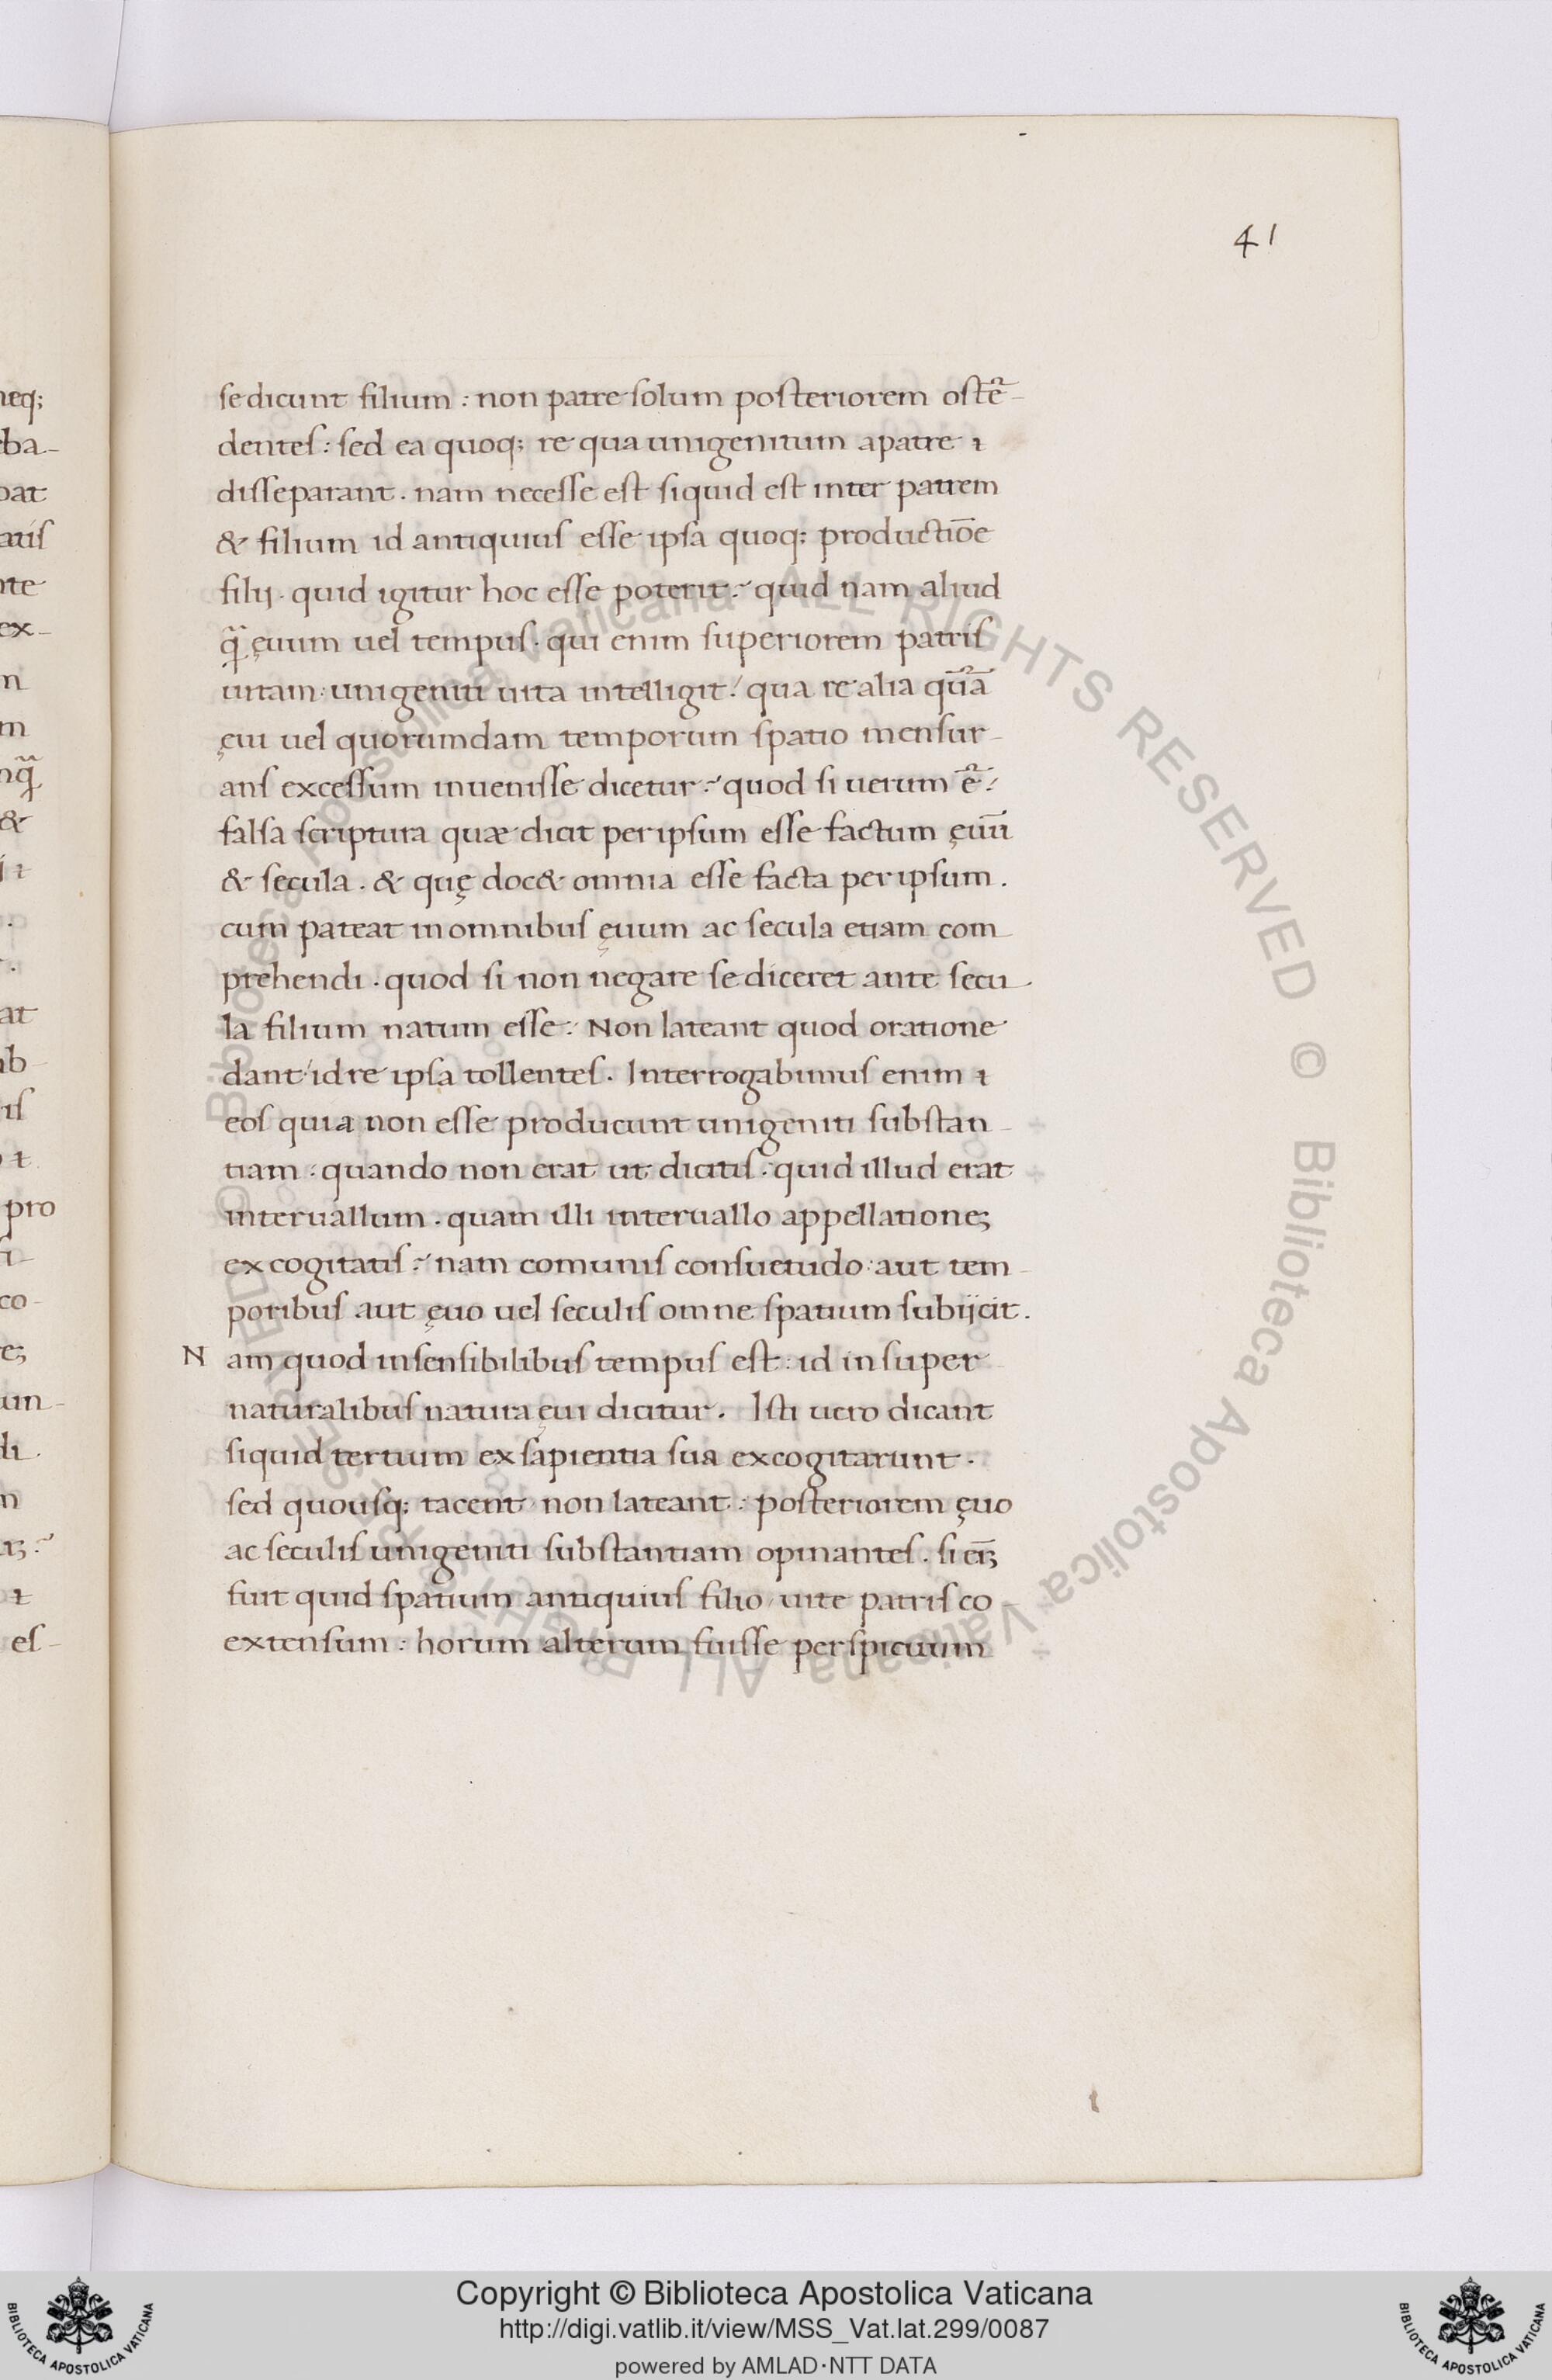 41
se dicunt filium : non patre solum posteriorem ostē-
dentes : sed ea quoq; re qua unigenitum a patre ⁊
disseparant . nam necesse est siquid est inter patrem
& filium id antiquius esse ipsa quoq; productiōe
filij . quid igitur hoc esse poterit ? quid nam aliud
q̃ ęuum uel tempus . qui enim superiorem patris
uitam : unigeniti uita intelligit / qua re alia qūā
ęui uel quorumdam temporum spatio mensur-
ans excessum inuenisse dicetur ? quod si uerum ē /
falsa scriptura quæ dicit per ipsum esse factum ęuū
& secula . & quę doc& omnia esse facta per ipsum .
cum pateat in omnibus ęuum ac secula etiam com-
prehendi . quod si non negare se diceret ante secu-
la filium natum esse : Non lateant quod oratione
dant / id re ipsa tollentes . Interrogabimus enim ⁊
eos quia non esse producunt unigeniti substan-
tiam : quando non erat ut dicitis : quid illud erat
interuallum . quam illi interuallo appellatione;
excogitatis ? nam comunis consuetudo : aut tem-
poribus aut ęuo uel seculis omne spatium subijcit .
Nam quod in sensibilibus tempus est : id in super
naturalibus natura ęui dicitur . Isti uero dicant
siquid tertium ex sapientia sua excogitarunt .
sed quousq; tacent / non lateant : posteriorem ęuo
ac seculis unigeniti substantiam opinantes . si ei;
fuit quid spatium antiquius filio / uite patris co-
extensum : horum alterum fuisse perspicuum
neq;
ba-
bat
atis
nte
ex-
n
m
nq̃
&
at
ab
is
pro
co-
e;
un-
di .
es-
© Biblioteca Apostolica Vaticana ALL RIGHTS RESERVED © Biblioteca Apostolica Vaticana ALL RIGHTS RESERVED
Copyright © Biblioteca Apostolica Vaticana
http://digi.vatlib.it/view/MSS_Vat.lat.299/0087
powered by AMLAD·NTT DATA
BIBLIOTECA APOSTOLICA VATICANA
BIBLIOTECA APOSTOLICA VATICANA